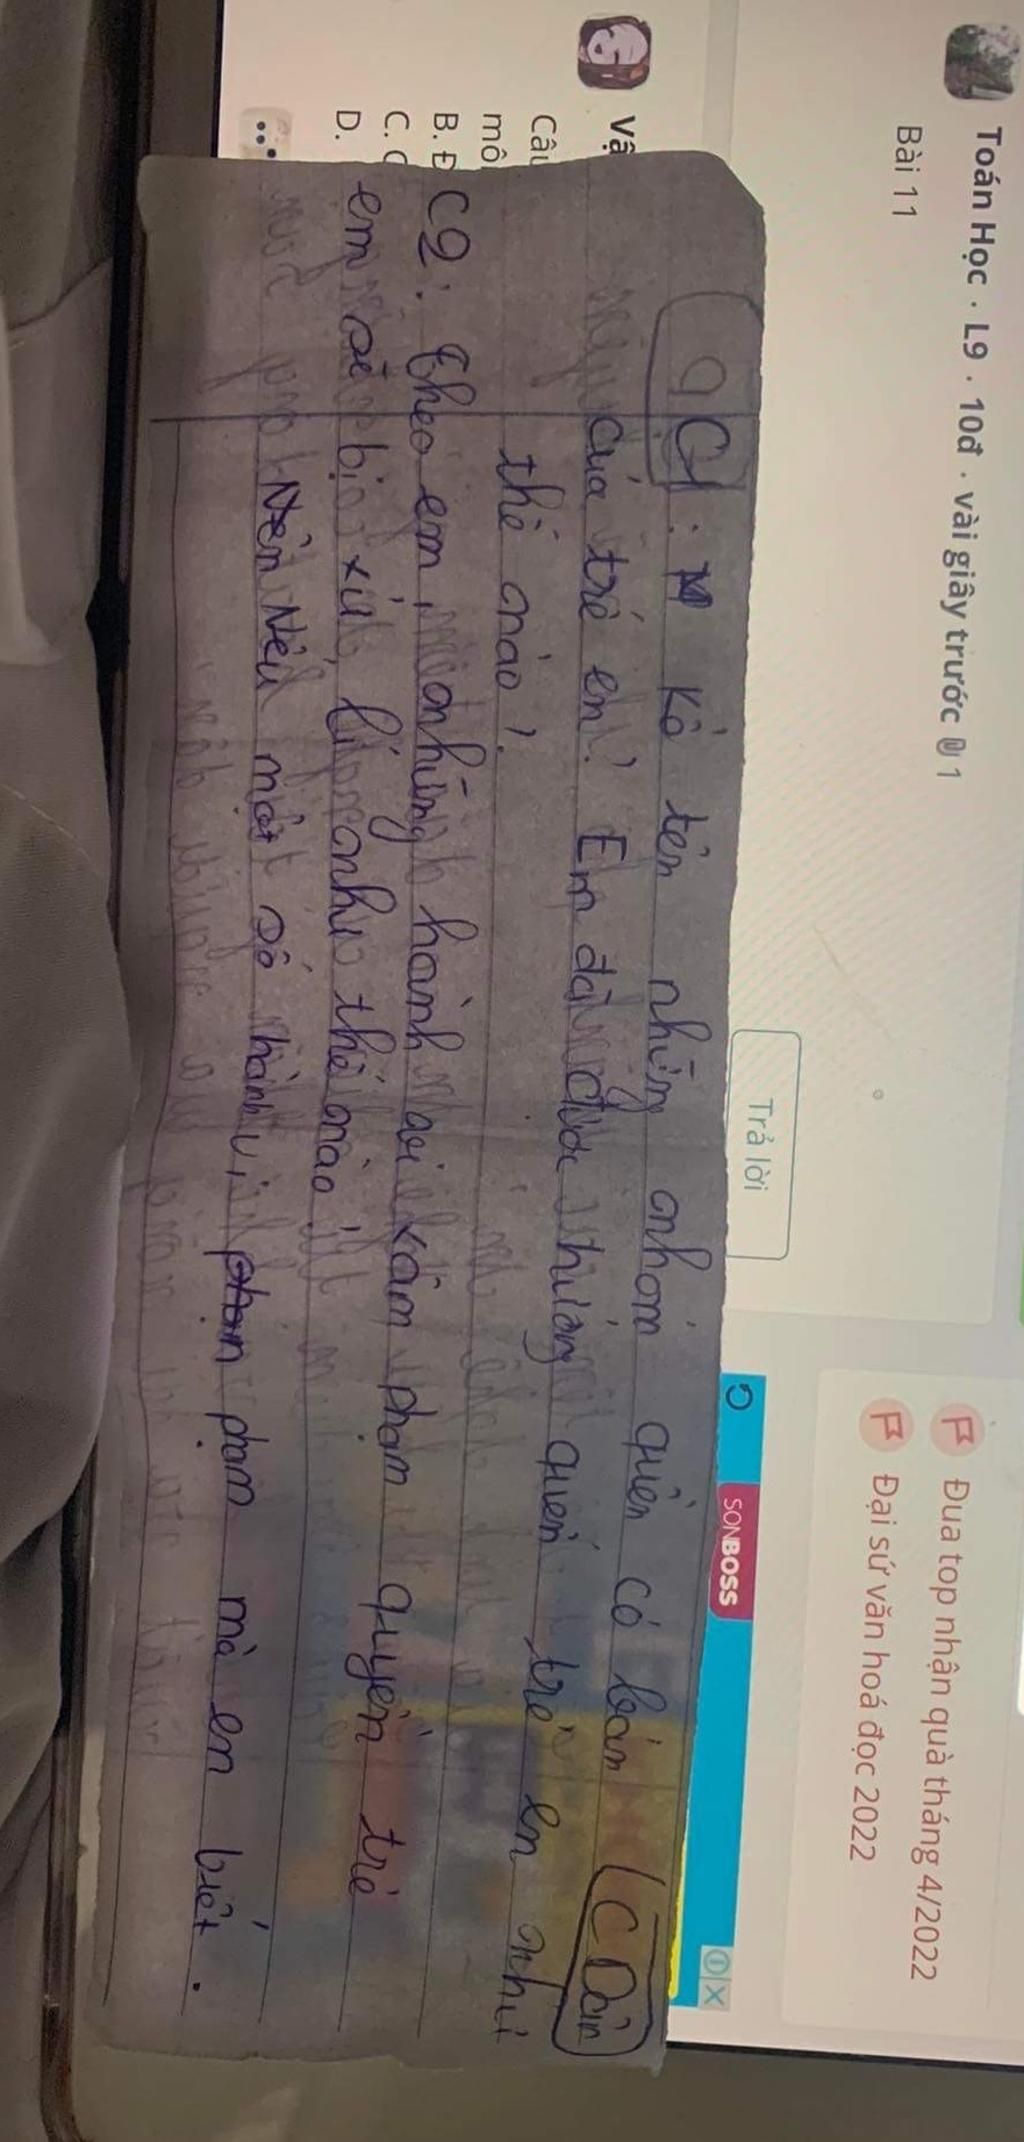 Toán Học · L9 · 10đ · vài giây trước 1
Bài 11
Trả lời
Đua top nhận quà tháng 4/2022
Đại sứ văn hoá đọc 2022
SONBOSS
Vậ
Câu
mô
B. Đ
C. C
D.
C1: Kể tên những nhóm quền cơ bản (C Dân
của trẻ em? Em đã được hưởng quền trẻ em như
thế nào?
C2: theo em, những hành vi xâm phạm quyền trẻ
em sẽ bị xử lí như thế nào?
Nêu một số hành vi phạm mà em biết.